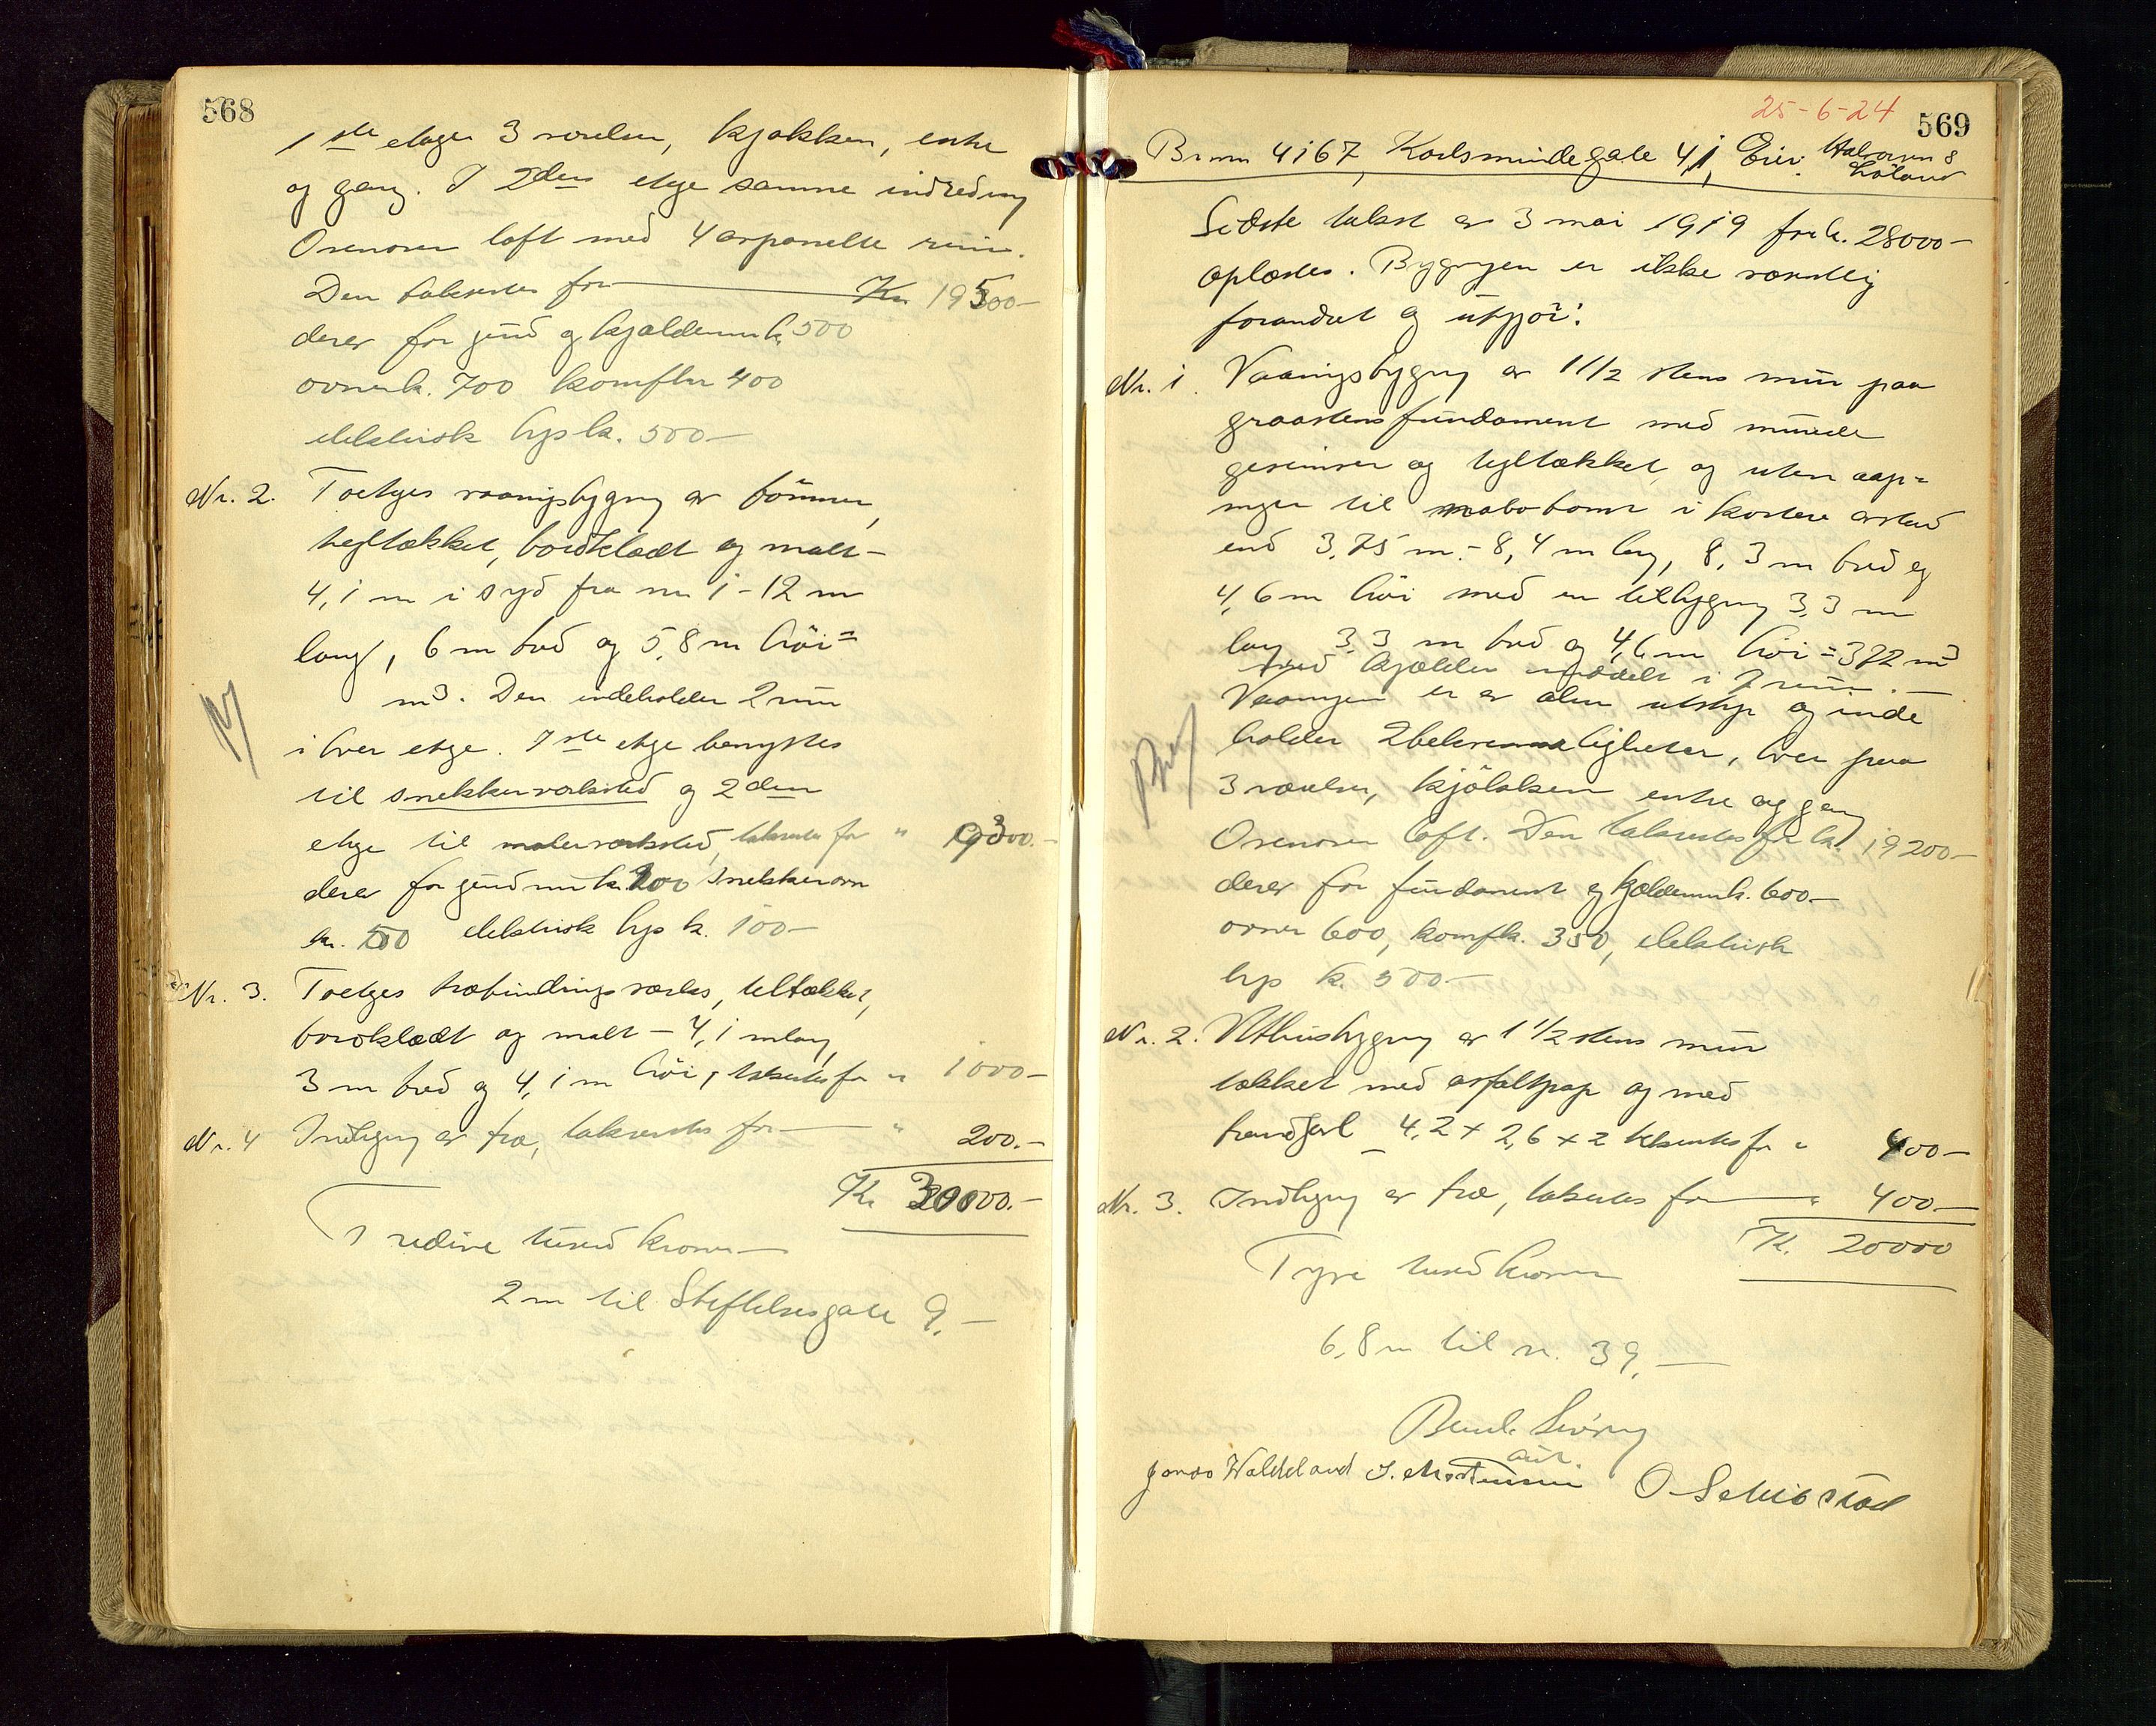 568
1ste etage 3 værelser, kjøkken, entre
og gang. I 2den etage samme indredning
Ovenover loft med 4 avpanelte rum.
Den takseres for Kr 19500-
derav for grund og kjældermur k. 500
ovner k. 700 komfyr 400
elektrisk lys k. 500-
Nr. 2. Toetages vaaningsbygning av tømmer,
tegltækket, bordklædt og malt-
4,1 m i syd fra nr 1 - 12 m
lang, 6 m bred og 5,8 m høi =
m3. Den indeholder 2 rum
i hver etage. 1ste etage benyttes
til snekkerværksted og 2den
etage til malerværksted, takseres for " 9300.-
derav for grundmur k. 200 snekkerovn
kr. 50 elektrisk lys k. 100-
Nr. 3. Toetages træbindingsværks, teltækket,
bordklædt og malt - 4,1 m lang,
3 m bred og 4,1 m høi, takseres for " 1000-
Nr. 4 Indhegning av træ, takseres for " 200.-
Kr 30000.-
Tredive tusend kroner
2 m til Stiftelsesgate 9.-
25-6-24
569
Br. nr 4167, Karlsmindegate 41, Eier: Halvorsen &
Løland
Sidste takst av 3 mai 1919 for k. 28000-
oplæstes. Bygningen er ikke væsentlig
forandret og utgjør:
Nr. 1. Vaaningsbygning av 1 1/2 stens mur paa
graastensfundament med murede
gesimser og tegltækket, og uten aap=
inger til nabotomt i kortere avstand
end 3,75 m. - 8,4 m lang, 8,3 m bred og
4,6 m høi med en tilbygning 3,3 m
lang 3,3 m bred og 4,6 m høi = 372 m3
med kjælder inddelt i 2 rum.-
Vaaningen er av alm utstyr og inde
holder 2 beboerligheter, hver paa
3 værelser, kjøkken entre og gang
Ovenover loft. Den takseres for kr. 19200-
derav for fundament og kjældermur k. 600.-
ovner 600, komf k. 350, elektrisk
lys k. 500-
Nr. 2. Uthusbygning av 1 1/2 stens mur
tækket med asfaltpap og med
brandgavl - 4,2 x 2,6 x 2 takseres for " 400-
Nr. 3. Indhegning av træ, takseres for " 400-
K. 20000
Tyve tusend kroner
6,8 m til nr. 39.-
Jonas Waldeland S. Mortensen O Schibstad